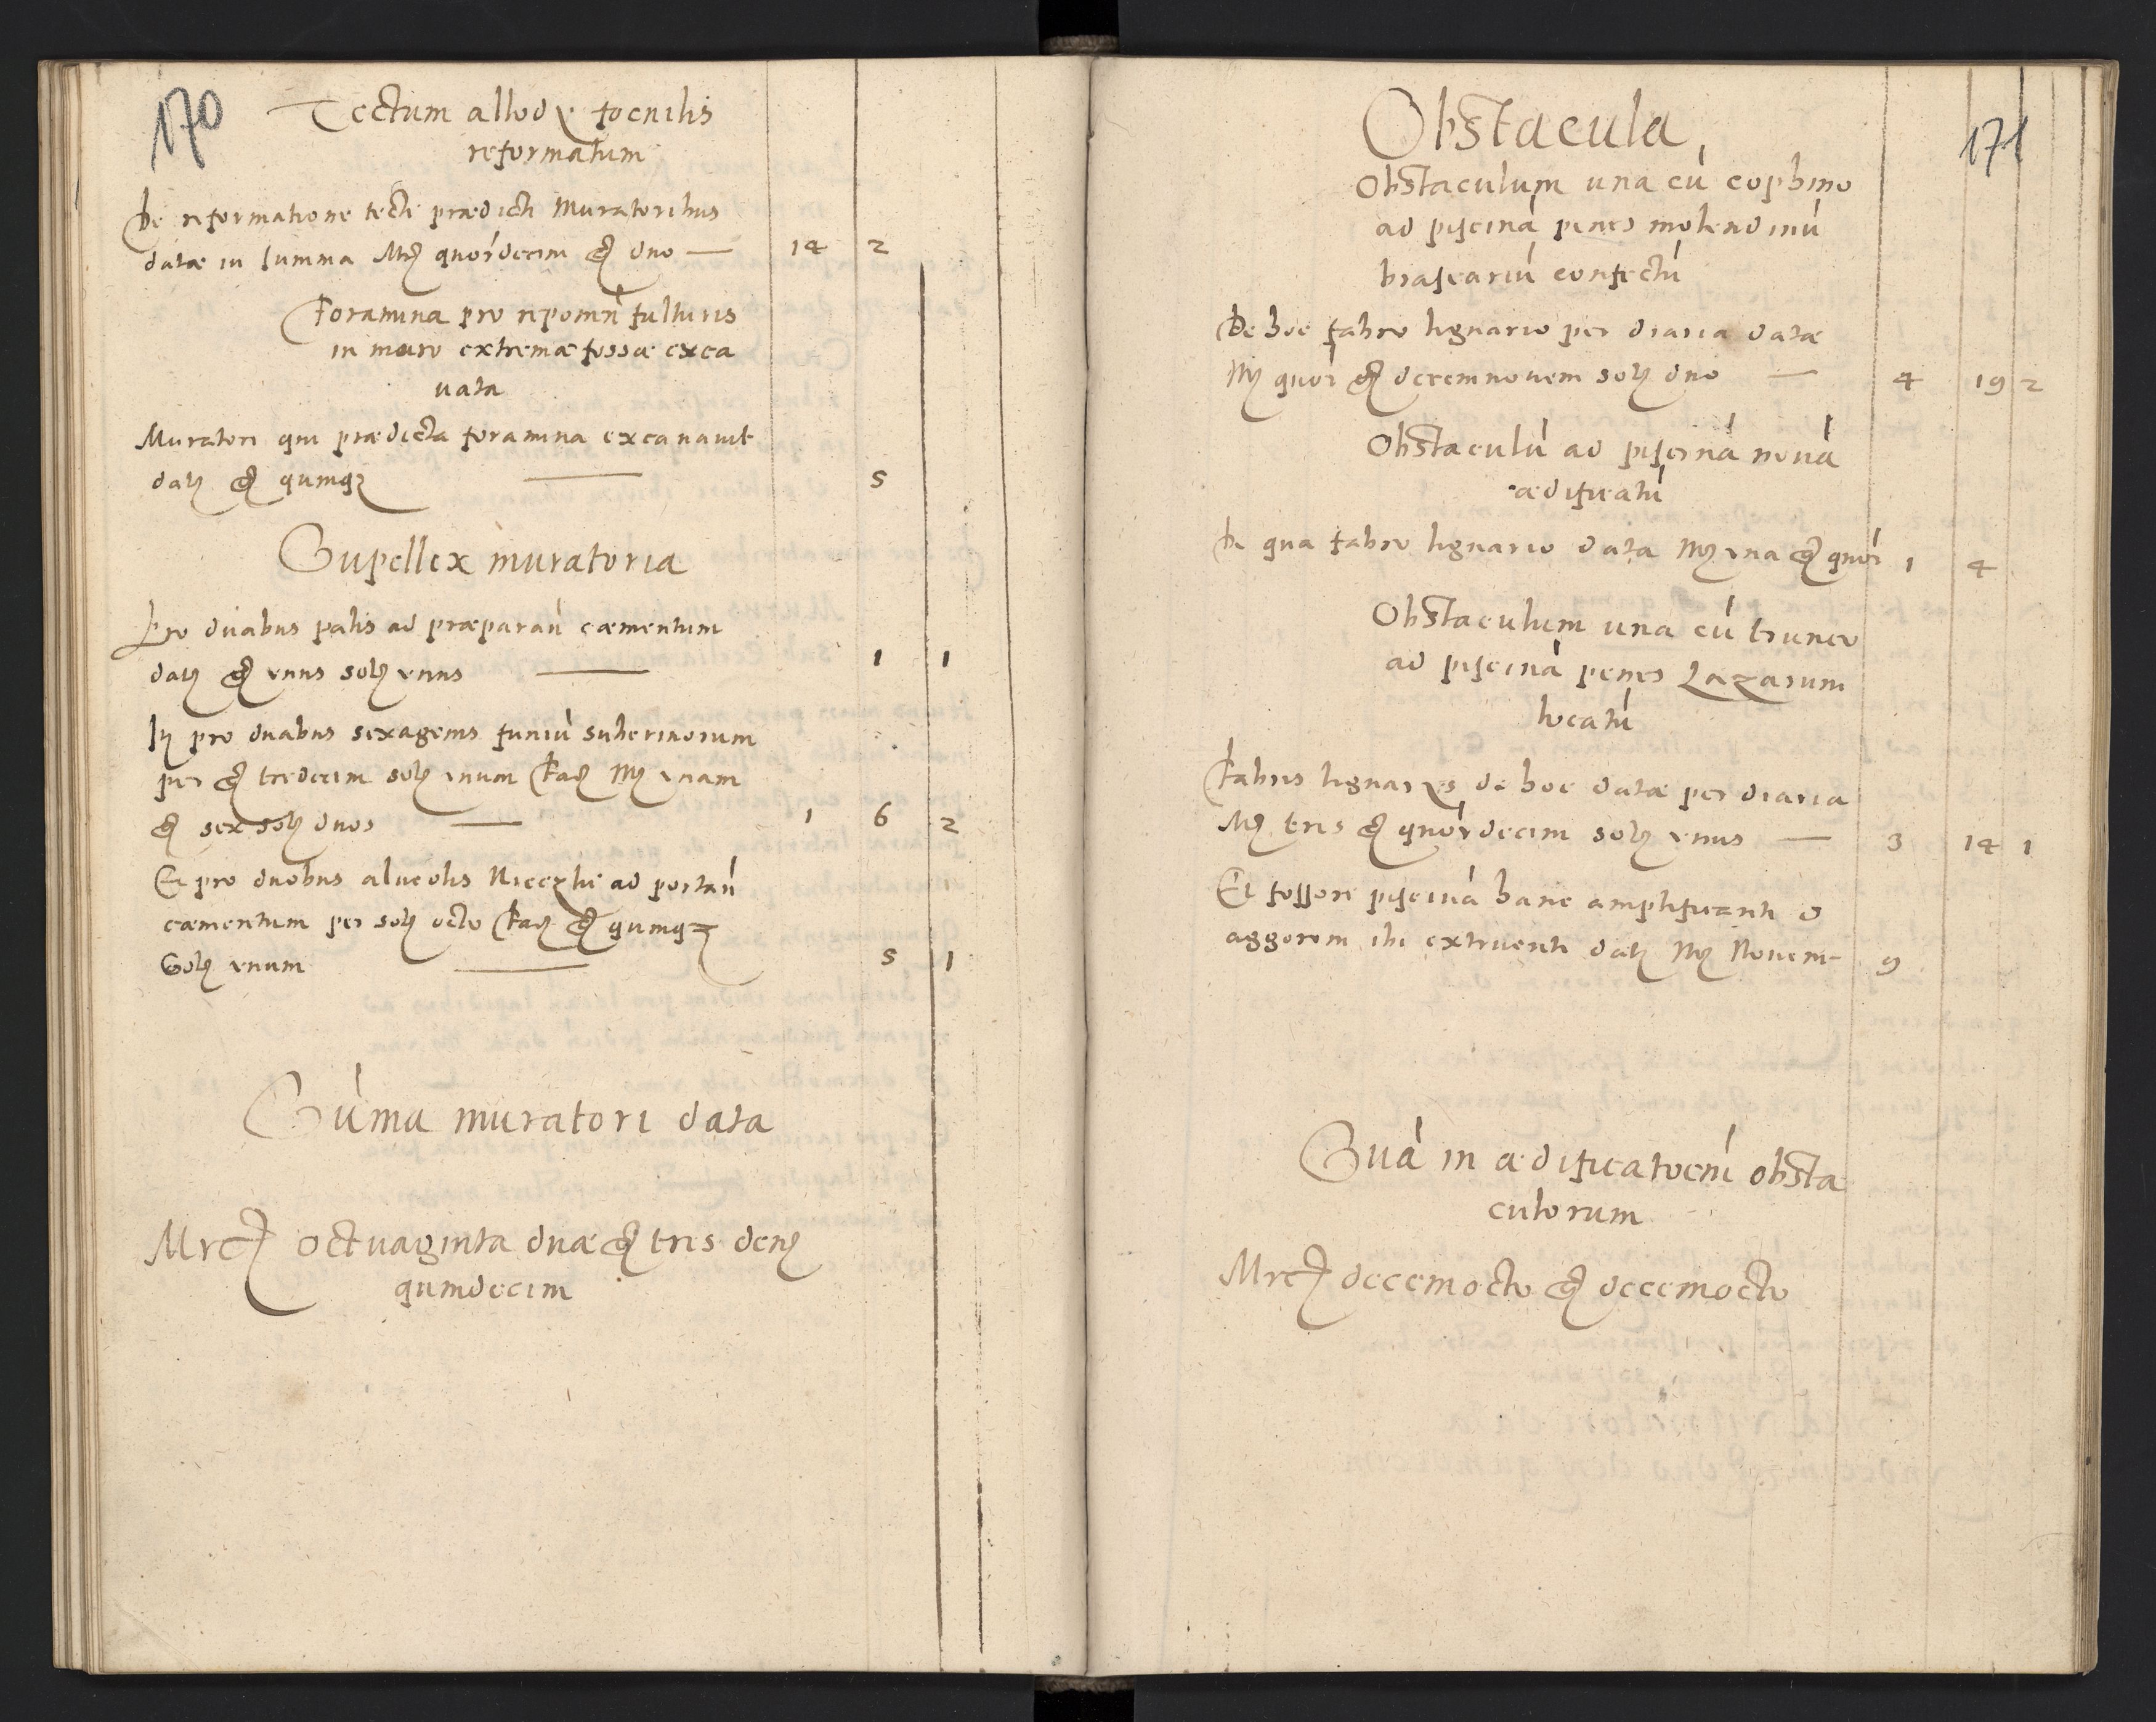 170
Tectum allodÿ foenilis
reformatum
De reformatione tecti prædicti Muratoribus
datæ in summa Mrc quordecim gr duo — 14 2
Foramina pro reponen fulturis
in muro extremæ fossæ exca
uata
Muratori qui prædicta foramina excauauit
dati gr quinqz — 5
Supellex muratoria
Pro duabus palis ad præparan cæmentum
dati gr vnus soli vnus — 1 1
It pro duabus sexagenis funiu suberinorum
per gr tredecim soli vnum fac Mrc vnam
gr sex soli duos — 1 6 2
Et pro duobus alueolis Nieczki ad portan
cæmentum per soli octo fac gr quinqz
Soli vnum — 5 1
Suma muratori data
Mrc octuaginta duæ gr tres den
quindecim
171
Obstacula
Obstaculum una cu cophino
ad piscina penes molendinu
braseariu confectu
De hoc fabro lignario per diaria datæ
Mrc quor gr decemnouem soli duo — 4 19 2
Obstaculu ad piscina noua
ædificatu
De qua fabro lignario data Mrc vna gr quor 1 4
Obstaculum una cu trunco
ad piscina penes Lazarum
locatu
Fabris lignarÿs de hoc datæ per diaria
Mrc tres gr quordecim soli vnus — 3 14 1
Et fossori piscina hanc amplificanti &
aggerem ibi extruenti dati Mrc Nouem — 9
Sua in ædificatoem obsta
culorum
Mrc decemocto gr decemocto